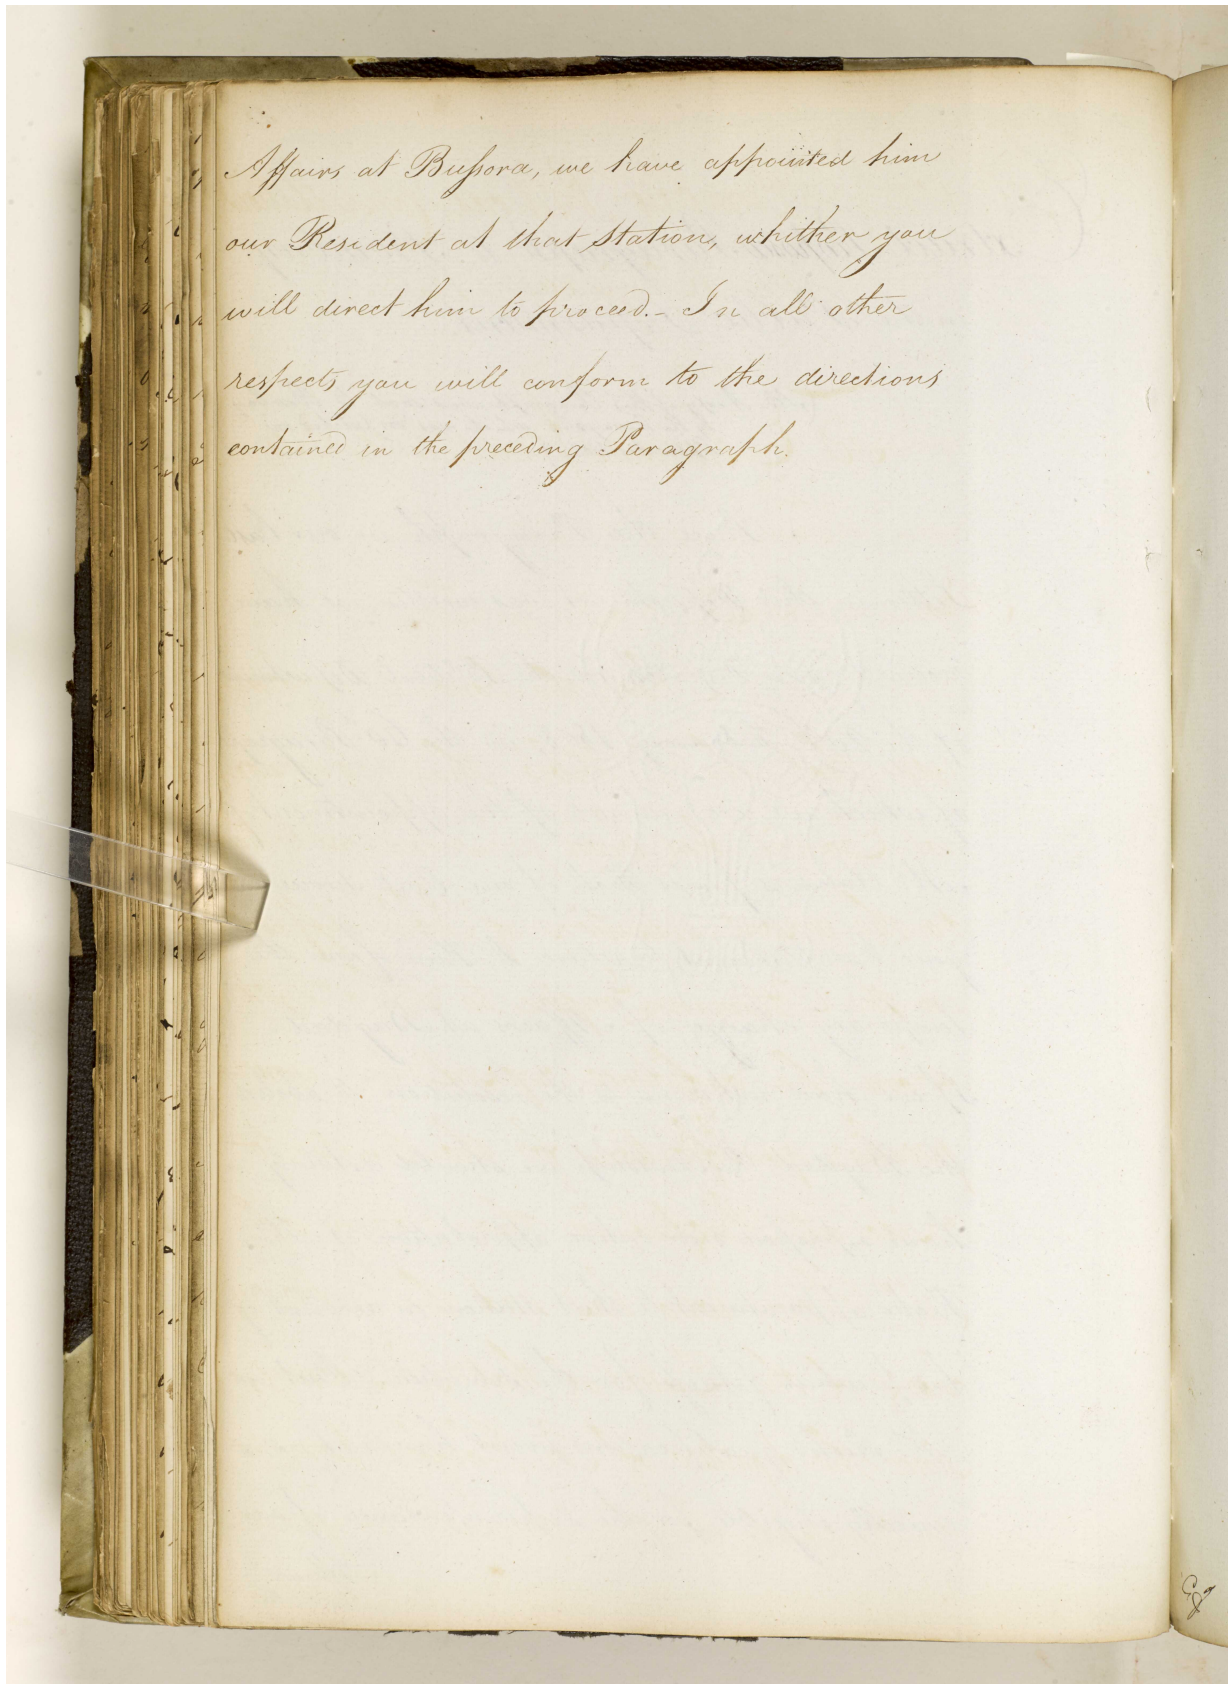 Affairs at Bussora, we have appointed him
our Resident at that Station, whither you
will direct him to proceed. - In all other
respects you will conform to the directions
contained in the preceding Paragraph.